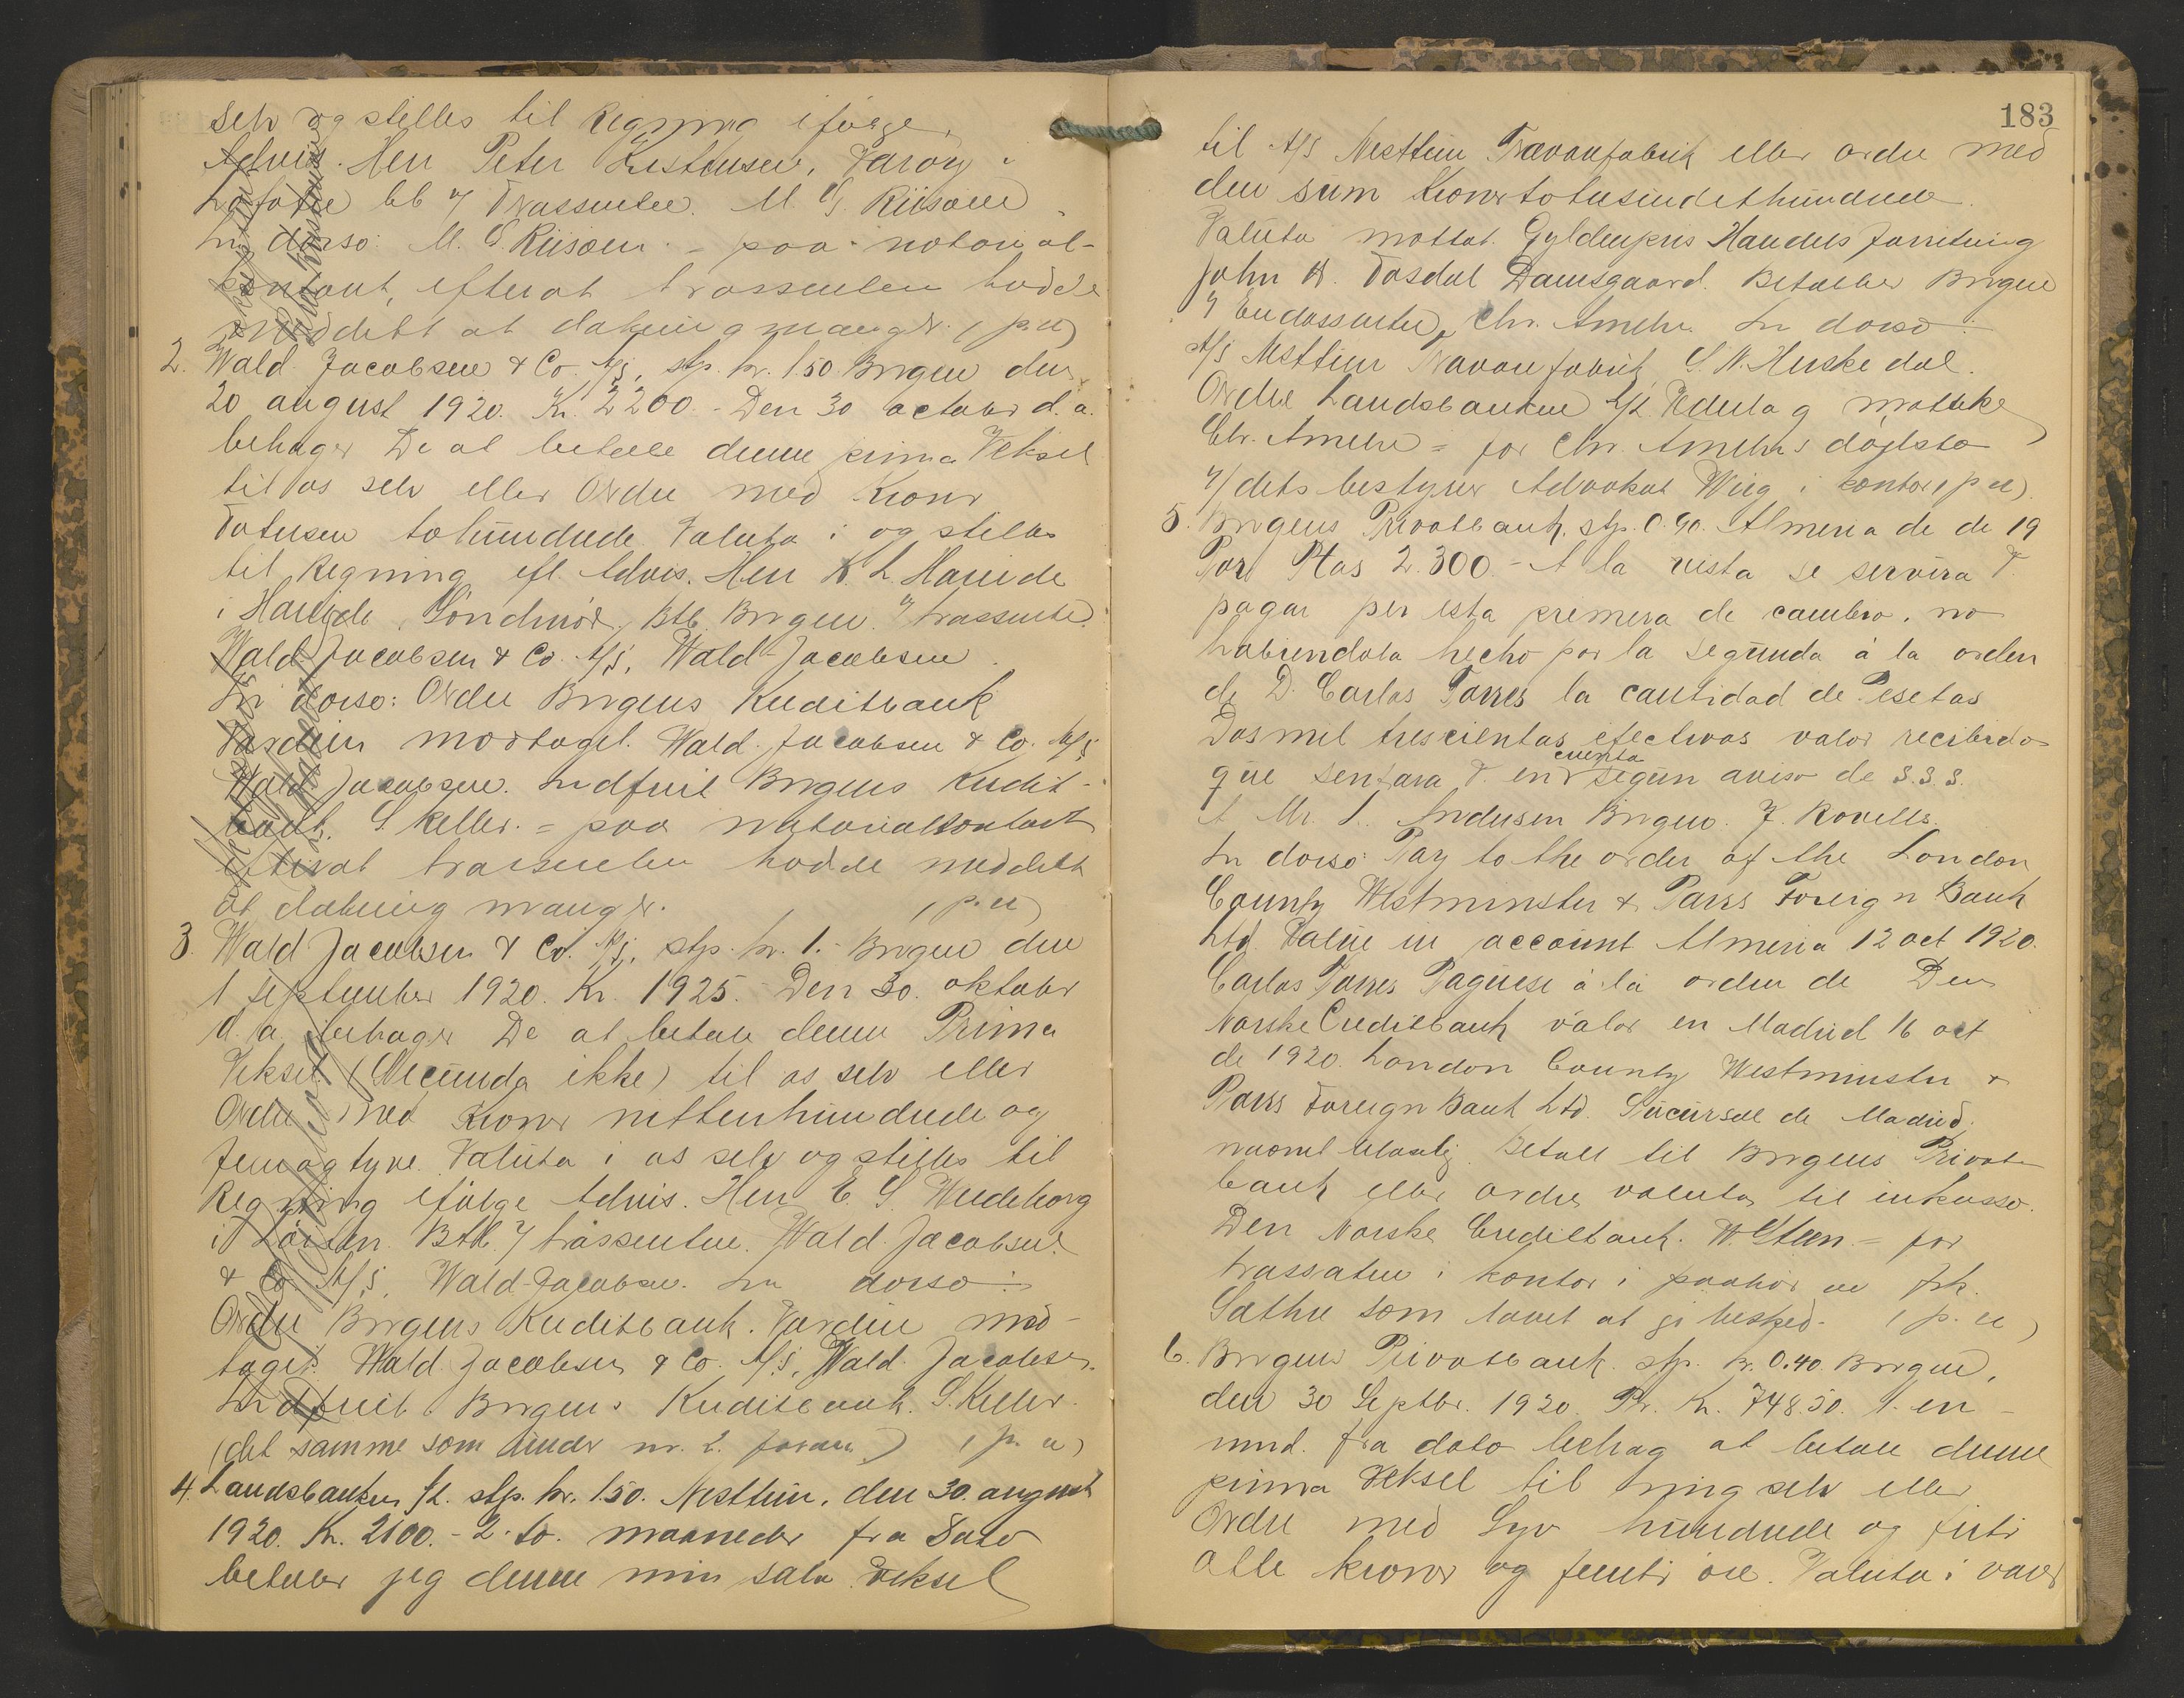 selv og stilles til Regning ifølge
Advis. Herr Peter Kristensen, Værøy i
Lofoten bb % Trassenten. M. S. Riisøen
In dorso: M. S. Riisøen. = paa notarial-
kontoret, efterat trassenten hadde
meddelt at dækning mangler. (p.u)
2. Wald. Jacobsen & Co. A/S, stp. kr. 1.50 Bergen den
20 august 1920. Kr. 2200.- Den 30 october d.a.
behager De at betale denne prima Veksel
til os selv eller Ordre med Kroner
Totusen tohundrede Valuta i og stilles
til Regning efl. Advis. Herr K. L. Hareide
i Hareide, Søndmør. Btb. Bergen. % trassenten.
Wald. Jacobsen & Co. A/S, Wald Jacobsen.
In dorso: Ordre Bergens Kreditbank
Værdien modtaget. Wald. Jacobsen & Co. A/S
Wald Jacobsen. Indfriet Bergens Kredit-
bank. S. Keller. = paa notarialkontoret
efterat trassenten hadde meddelt
at dækning mangler. (p.u)
3. Wald Jacobsen & Co. A/S, stp. kr. 1.- Bergen den
1 september 1920. Kr. 1925.- Den 30. oktober
d.a. behager De at betale denne Prima
Veksel (Secunda ikke) til os selv eller
Ordre med Kroner nittenhundrede og
femogtyve. Valuta i os selv og stilles til
Regning ifølge Advis. Herr E. S.
i Btb. % trassenten. Wald. Jacobsen
& Co. A/S, Wald Jacobsen. In dorso:
Ordre Bergens Kreditbank. Værdien mod-
taget. Wald. Jacobsen & Co. A/S, Wald. Jacobsen.
Indfriet Bergens Kreditbank. S. Keller.
(det samme som under nr. 2. foran.) (p.u)
4. Landsbanken stp. kr. 1.50. Nesttun, den 30. august
1920. Kr. 2100.- 2. to. maaneder fra Dato
betaler jeg denne min sola Veksel
183
til A/S Nesttun Trævarefabrik eller ordre med
den sum Kroner totusindethundrede.
Valuta mottat. Gyldenpris Handels forretning
John H. Tosdal Damsgaard. Betales Bergen
% Endossenten, Chr. Amelsn. In dorso:
A/S Nesttun Trævarefabrik, S. N. Huskedal.
Ordre Landsbanken Vederlag mottat
Chr. Amelsn = for Chr. Amelns dødsbo
%/dets bestyrer Advokat Wiig i kontor (p.u).
5. Bergens Privatbank, stp. 0.90. Almeria de de 19
Por Ptas 2.300.- A la vista se servira V.
pagar per esta premera de cambio, no
habiendola hecho por la segunda á la orden
de D. Carlos Torres la cantidad de Pesetas
Dosmil trescientas efectivas valor recibido
que sentara V. en cuenta segun aviso de S.S.S.
A Mr. Andersen Bergen. J. Rovells.
In dorso: Pay to the order of the London
County Westminster & Parrs Foreign Bank
Ltd. Value in account Almeria 12 oct 1920.
Carlos Torres Paguese á la orden de Den
Norske Creditbank valor en Madrid 16 oct
de 1920. London County Westminster &
Parrs Foreign Bank Ltd. Sucursal de Madrid.
navnet ulæselig. Betall til Bergens Privat-
bank eller ordre valuta til inkasso.
Den Norske Creditbank. W. Steen = for
trassaten i kontor i paahør av frk.
Sæthre som lovet at gi besked. (p.u)
6. Bergens Privatbank. stp. kr. 0.40. Bergen,
den 30 Septbr. 1920. Pr. Kr. 748.50. 1. en
mnd. fra dato behag at betale denne
prima Veksel til mig selv eller
Ordre med Syv hundrede og firti
otte kroner og femti øre. Valuta i varer